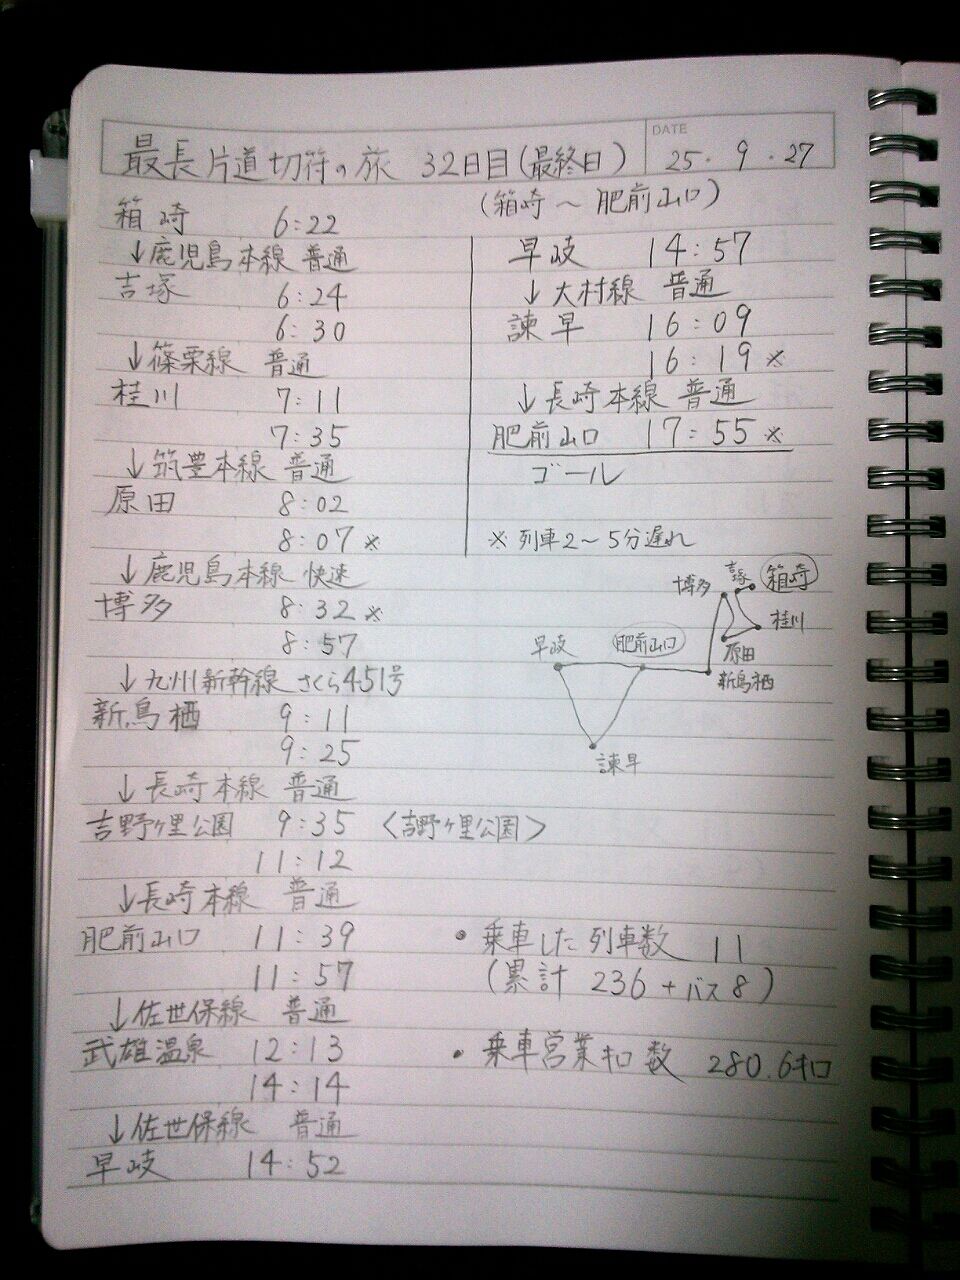 DATE
最長片道切符の旅 32日目(最終日)
25・9・27
(箱崎～肥前山口)
箱崎 6:22
↓鹿児島本線 普通
吉塚 6:24
6:30
↓篠栗線 普通
桂川 7:11
7:35
↓筑豊本線 普通
原田 8:02
8:07※
↓鹿児島本線 快速
博多 8:32※
8:57
↓九州新幹線 さくら451号
新鳥栖 9:11
9:25
↓長崎本線 普通
吉野ヶ里公園 9:35 <吉野ヶ里公園>
11:12
↓長崎本線 普通
肥前山口 11:39
11:57
↓佐世保線 普通
武雄温泉 12:13
14:14
↓佐世保線 普通
早岐 14:52
早岐 14:57
↓大村線 普通
諫早 16:09
16:19※
↓長崎本線 普通
肥前山口 17:55※
ゴール
※列車2～5分遅れ
博多
吉塚
箱崎
桂川
原田
新鳥栖
早岐
肥前山口
諫早
・乗車した列車数 11
(累計 236+バス8)
・乗車営業キロ数 280.6キロ